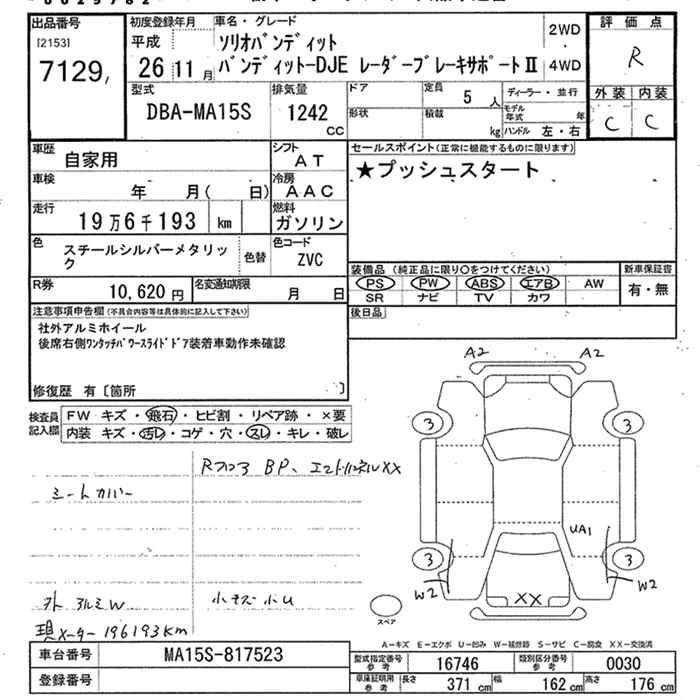 出品番号
[2153]
7129,
初度登録年月
平成
26 11 月
車名・グレード
ソリオバンディット
バンディットーDJE レーダーブレーキサポートⅡ
2WD
・
4WD
評価点
R
外装 内装
C C
型式
DBA-MA15S
排気量
1242
CC
ドア
形状
定員
5 人
積載
kg
ディーラー・並行
モデル年式 年
ハンドル 左・右
車歴
自家用
シフト
AT
車検
年 月( 日)
冷房
AAC
走行
19万6千193 km
燃料
ガソリン
色
スチールシルバーメタリック
色替
色コード
ZVC
R券
10,620 円
名変通知期限
月 日
セールスポイント(正常に機能するものに限ります)
★プッシュスタート
装備品 (純正品に限り〇をつけてください)
PS PW ABS エアB AW
SR ナビ TV カワ
新車保証書
有・無
後日品
注意事項申告欄(不具合内容等は具体的に記入して下さい)
社外アルミホイール
後席右側ワンタッチパワースライドドア装着車動作未確認
修復歴 有〔箇所 〕
検査員記入欄
FW キズ・飛石・ヒビ割・リペア跡・×要
内装 キズ・汚レ・コゲ・穴・スレ・キレ・破レ
シートカバー
外 アルミW
現メーター196193km
BP、エンドパネルXX
小キズ小U
A2 A2
3 3
UA1
3 3
W2 W2
XX
スペア
A-キズ E-エクボ U-凹み W-補修跡 S-サビ C-腐食 XX-交換済
車台番号
MA15S-817523
登録番号
型式指定番号
参考
16746
類別区分番号
参考
0030
車庫証明用
参考
長さ 371 cm 幅 162 cm 高さ 176 cm